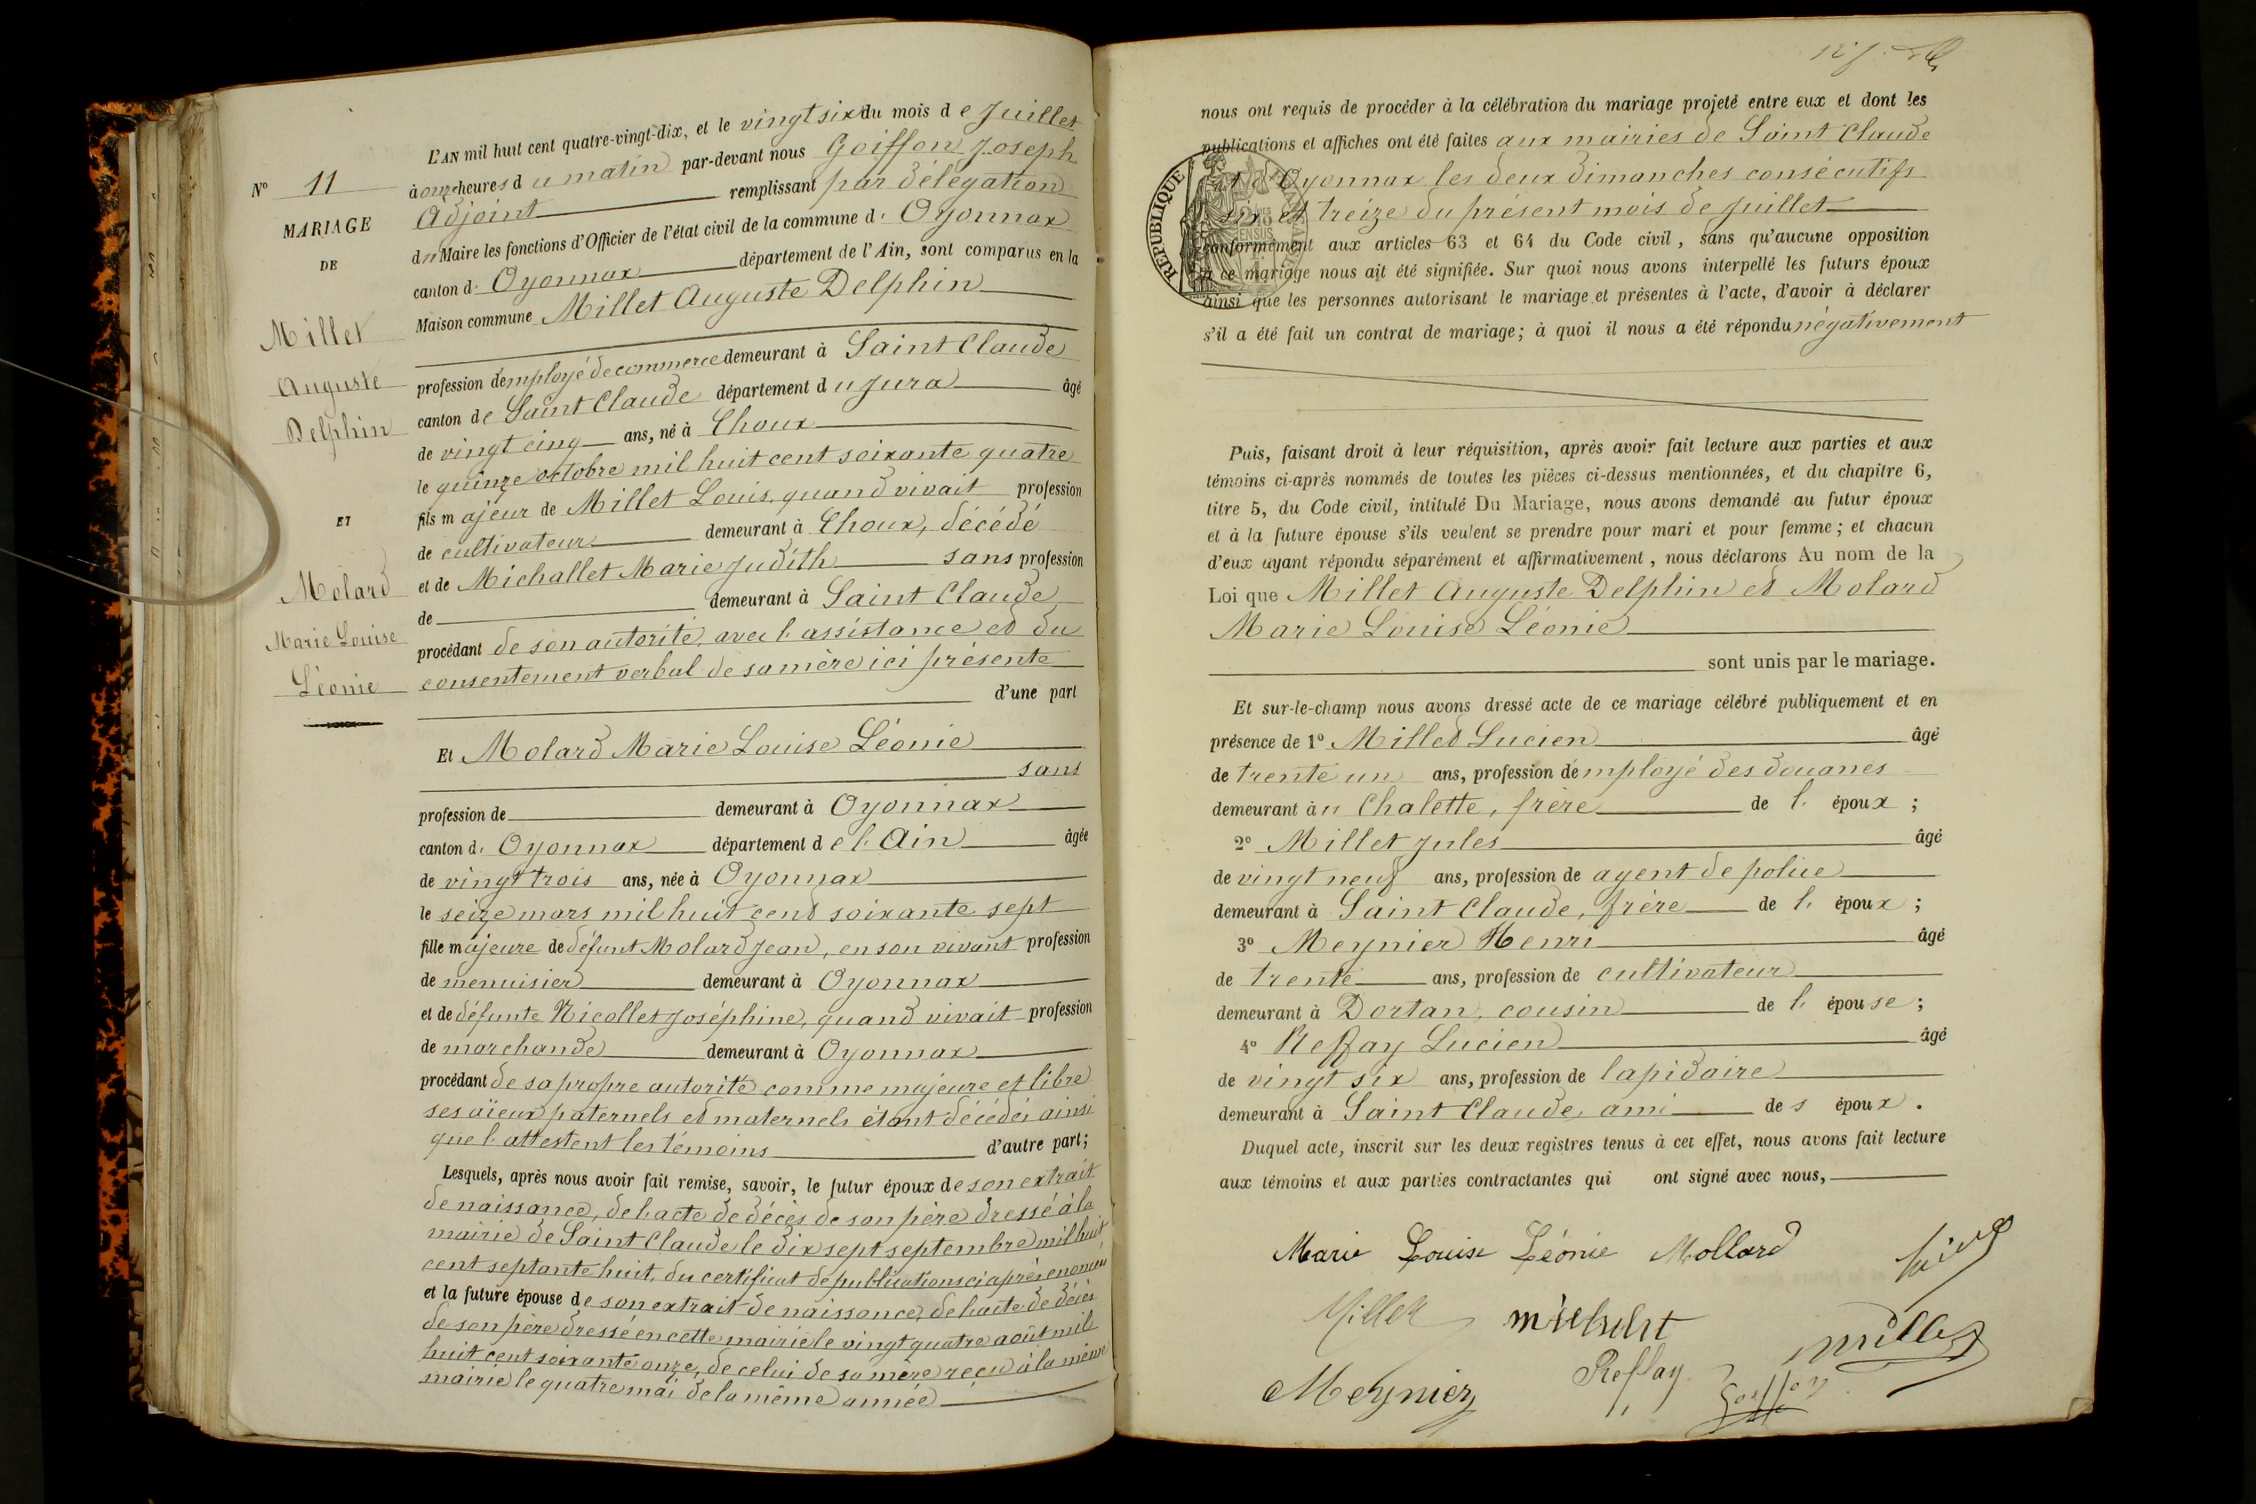 L'AN mil huit cent quatre-vingt-dix, et le vingt six du mois de Juillet
à onze heures du matin par-devant nous Goiffon Joseph
Adjoint remplissant par délégation
du Maire les fonctions d'Officier de l'état civil de la commune d' Oyonnax
canton d' Oyonnax département de l'Ain, sont comparus en la
Maison commune Millet Auguste Delphin
profession d employé de commerce demeurant à Saint Claude
canton de Saint Claude département du Jura âgé
de vingt cinq ans, né à Choux
le quinze octobre mil huit cent soixante quatre
fils majeur de Millet Louis, quand vivait profession
de cultivateur demeurant à Choux, décédé
et de Michallet Marie Judith sans profession
de demeurant à Saint Claude
procédant de son autorité, avec l'assistance et du
consentement verbal de sa mère ici présente
d'une part
Et Molard Marie Louise Léonie
sans
profession de demeurant à Oyonnax
canton d' Oyonnax département de l'Ain âgée
de vingt trois ans, née à Oyonnax
le seize mars mil huit cent soixante sept
fille majeure de défunt Molard Jean, en son vivant profession
de menuisier demeurant à Oyonnax
et de défunte Nicollet Joséphine, quand vivait profession
de marchande demeurant à Oyonnax
procédant de sa propre autorité comme majeure et libre
ses aïeux paternels et maternels étant décédés ainsi
que l'attestent les témoins d'autre part;
Lesquels, après nous avoir fait remise, savoir, le futur époux de son extrait
de naissance, de l'acte de décès de son père dressé à la
mairie de Saint Claude le dix sept septembre mil huit
cent septante huit, du certificat de publications ci après énoncées
et la future épouse de son extrait de naissance, de l'acte de décès
de son père dressé en cette mairie le vingt quatre août mil
huit cent soixante onze, de celui de sa mère reçu à la même
mairie le quatre mai de la même année
N° 11
MARIAGE
DE
Millet
Auguste
Delphin
ET
Molard
Marie Louise
Léonie
nous ont requis de procéder à la célébration du mariage projeté entre eux et dont les
publications et affiches ont été faites aux mairies de Saint Claude
et d'Oyonnax les deux dimanches consécutifs
six et treize du présent mois de Juillet
conformément aux articles 63 et 64 du Code civil, sans qu'aucune opposition
à ce mariage nous ait été signifiée. Sur quoi nous avons interpellé les futurs époux
ainsi que les personnes autorisant le mariage et présentes à l'acte, d'avoir à déclarer
s'il a été fait un contrat de mariage; à quoi il nous a été répondu négativement
RÉPUBLIQUE FRANÇAISE
Puis, faisant droit à leur réquisition, après avoir fait lecture aux parties et aux
témoins ci-après nommés de toutes les pièces ci-dessus mentionnées, et du chapitre 6,
titre 5, du Code civil, intitulé Du Mariage, nous avons demandé au futur époux
et à la future épouse s'ils veulent se prendre pour mari et pour femme; et chacun
d'eux ayant répondu séparément et affirmativement, nous déclarons Au nom de la
Loi que Millet Auguste Delphin et Molard
Marie Louise Léonie
sont unis par le mariage.
Et sur-le-champ nous avons dressé acte de ce mariage célébré publiquement et en
présence de 1° Millet Lucien âgé
de trente un ans, profession d employé des douanes
demeurant à Chalette, frère de l' époux;
2° Millet Jules âgé
de vingt neuf ans, profession de agent de police
demeurant à Saint Claude, frère de l' époux;
3° Meynier Henri âgé
de trente ans, profession de cultivateur
demeurant à Dortan, cousin de l' épouse;
4° Reffay Lucien âgé
de vingt six ans, profession de lapidaire
demeurant à Saint Claude, ami des époux.
Duquel acte, inscrit sur les deux registres tenus à cet effet, nous avons fait lecture
aux témoins et aux parties contractantes qui ont signé avec nous,
Marie Louise Léonie Mollard
Millet
Millet
Meynier Reffay Goiffon